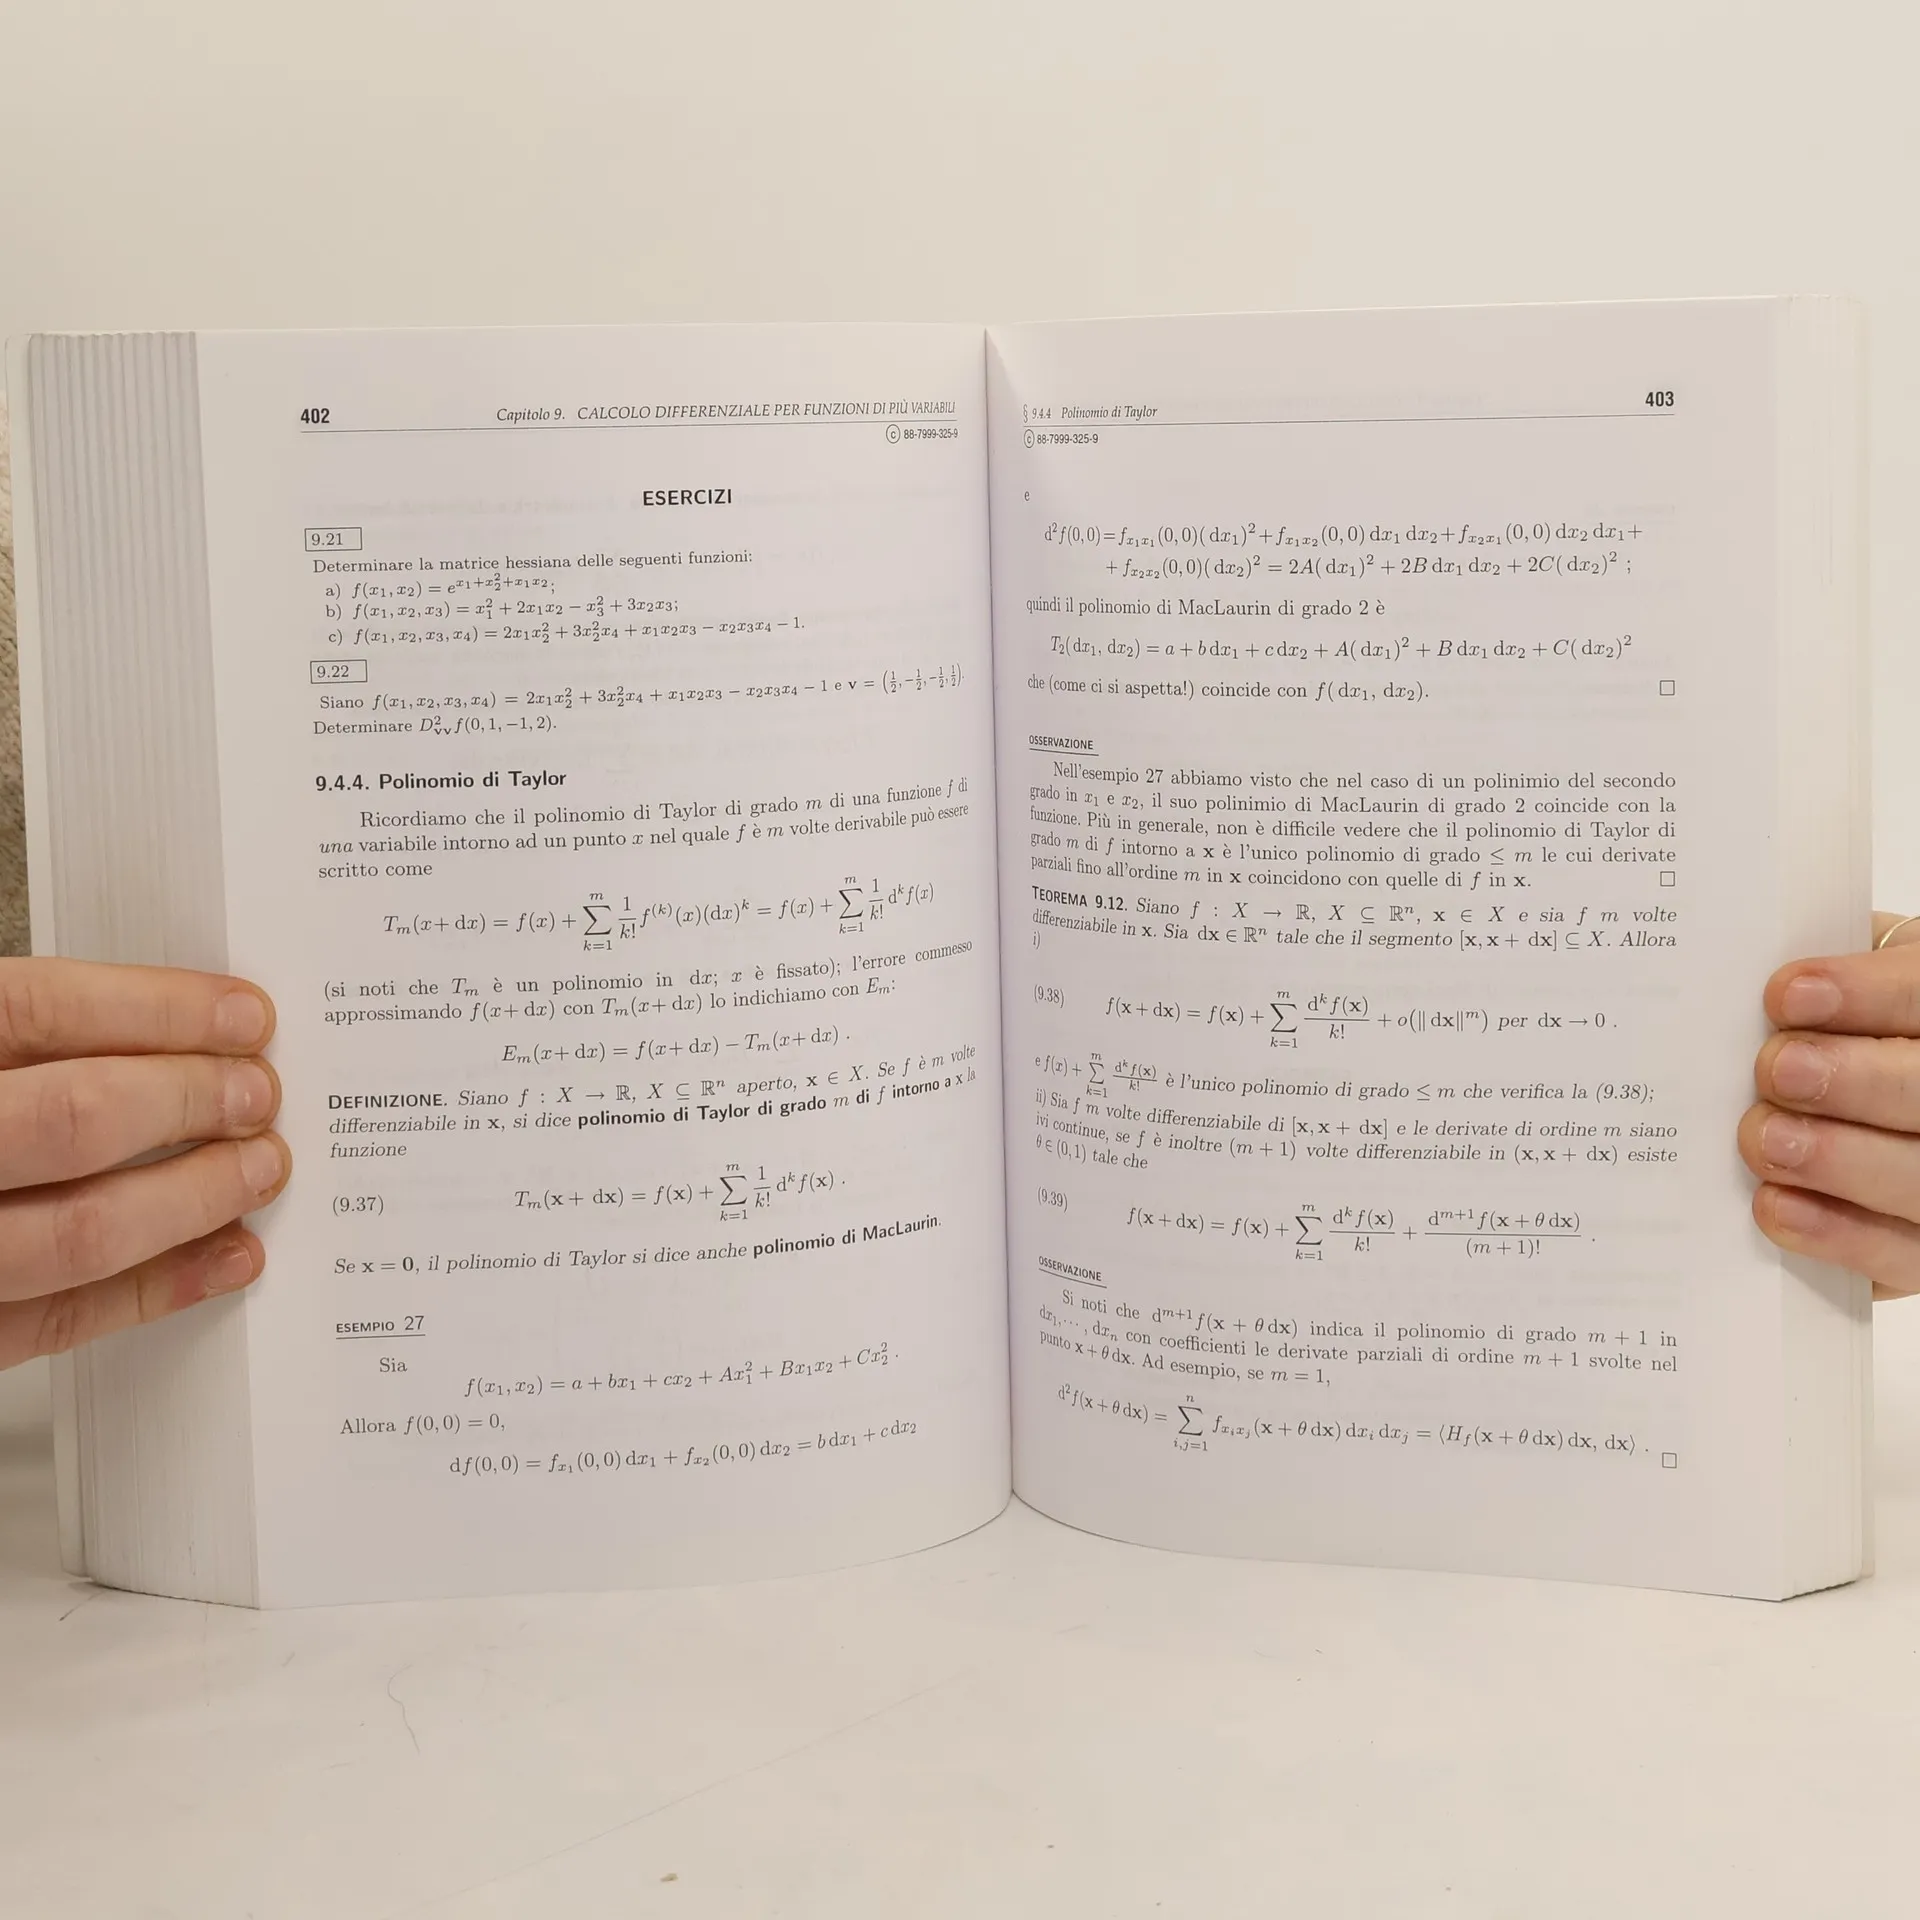 402 Capitolo 9. CALCOLO DIFFERENZIALE PER FUNZIONI DI PIÙ VARIABILI
© 88-7999-325-9
ESERCIZI
9.21
Determinare la matrice hessiana delle seguenti funzioni:
a) f(x₁, x₂) = e^{x₁+x₂²+x₁x₂};
b) f(x₁, x₂, x₃) = x₁² + 2x₁x₂ − x₃² + 3x₂x₃;
c) f(x₁, x₂, x₃, x₄) = 2x₁x₂² + 3x₂²x₄ + x₁x₂x₃ − x₂x₃x₄ − 1.
9.22
Siano f(x₁, x₂, x₃, x₄) = 2x₁x₂² + 3x₂²x₄ + x₁x₂x₃ − x₂x₃x₄ − 1 e v = (1/2, −1/2, −1/2, 1/2).
Determinare D²_{vv} f(0, 1, −1, 2).
9.4.4. Polinomio di Taylor
Ricordiamo che il polinomio di Taylor di grado m di una funzione f di
una variabile intorno ad un punto x nel quale f è m volte derivabile può essere
scritto come
T_m(x + dx) = f(x) + ∑_{k=1}^{m} 1/k! f^{(k)}(x)(dx)^k = f(x) + ∑_{k=1}^{m} 1/k! d^k f(x)
(si noti che T_m è un polinomio in dx; x è fissato); l'errore commesso
approssimando f(x + dx) con T_m(x + dx) lo indichiamo con E_m:
E_m(x + dx) = f(x + dx) − T_m(x + dx) .
DEFINIZIONE. Siano f : X → ℝ, X ⊆ ℝⁿ aperto, x ∈ X. Se f è m volte
differenziabile in x, si dice polinomio di Taylor di grado m di f intorno a x la
funzione
(9.37) T_m(x + dx) = f(x) + ∑_{k=1}^{m} 1/k! d^k f(x) .
Se x = 0, il polinomio di Taylor si dice anche polinomio di MacLaurin.
ESEMPIO 27
Sia
f(x₁, x₂) = a + bx₁ + cx₂ + Ax₁² + Bx₁x₂ + Cx₂² .
Allora f(0, 0) = 0,
df(0, 0) = f_{x₁}(0, 0) dx₁ + f_{x₂}(0, 0) dx₂ = b dx₁ + c dx₂
§ 9.4.4 Polinomio di Taylor 403
© 88-7999-325-9
e
d²f(0,0) = f_{x₁x₁}(0,0)(dx₁)² + f_{x₁x₂}(0,0) dx₁ dx₂ + f_{x₂x₁}(0,0) dx₂ dx₁ +
+ f_{x₂x₂}(0,0)(dx₂)² = 2A(dx₁)² + 2B dx₁ dx₂ + 2C(dx₂)² ;
quindi il polinomio di MacLaurin di grado 2 è
T₂(dx₁, dx₂) = a + b dx₁ + c dx₂ + A(dx₁)² + B dx₁ dx₂ + C(dx₂)²
che (come ci si aspetta!) coincide con f(dx₁, dx₂). □
OSSERVAZIONE
Nell'esempio 27 abbiamo visto che nel caso di un polinimio del secondo
grado in x₁ e x₂, il suo polinimio di MacLaurin di grado 2 coincide con la
funzione. Più in generale, non è difficile vedere che il polinomio di Taylor di
grado m di f intorno a x è l'unico polinomio di grado ≤ m le cui derivate
parziali fino all'ordine m in x coincidono con quelle di f in x. □
TEOREMA 9.12. Siano f : X → ℝ, X ⊆ ℝⁿ, x ∈ X e sia f m volte
differenziabile in x. Sia dx ∈ ℝⁿ tale che il segmento [x, x + dx] ⊆ X. Allora
i)
(9.38) f(x + dx) = f(x) + ∑_{k=1}^{m} d^k f(x)/k! + o(‖dx‖^m) per dx → 0 .
e f(x) + ∑_{k=1}^{m} d^k f(x)/k! è l'unico polinomio di grado ≤ m che verifica la (9.38);
ii) Sia f m volte differenziabile di [x, x + dx] e le derivate di ordine m siano
ivi continue, se f è inoltre (m + 1) volte differenziabile in (x, x + dx) esiste
θ ∈ (0, 1) tale che
(9.39) f(x + dx) = f(x) + ∑_{k=1}^{m} d^k f(x)/k! + d^{m+1} f(x + θ dx)/(m + 1)! .
OSSERVAZIONE
Si noti che d^{m+1} f(x + θ dx) indica il polinomio di grado m + 1 in
dx₁, ··· , dxₙ con coefficienti le derivate parziali di ordine m + 1 svolte nel
punto x + θ dx. Ad esempio, se m = 1,
d²f(x + θ dx) = ∑_{i,j=1}^{n} f_{x_i x_j}(x + θ dx) dx_i dx_j = ⟨H_f(x + θ dx) dx, dx⟩ . □